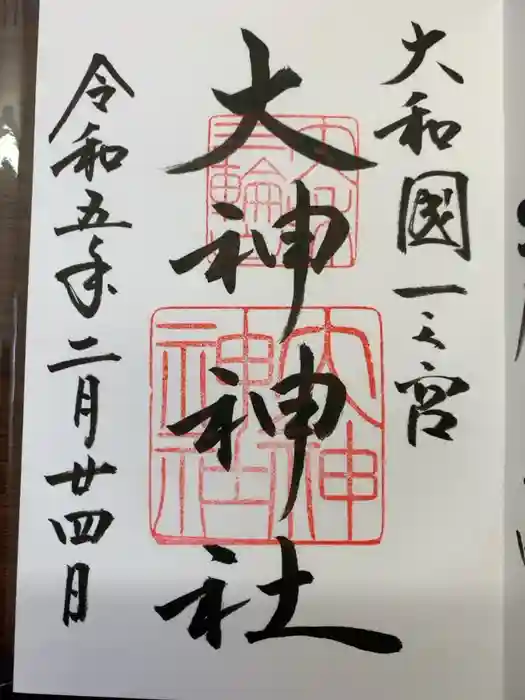 大和國一之宮
大神神社
令和五年二月廿四日
大神神社